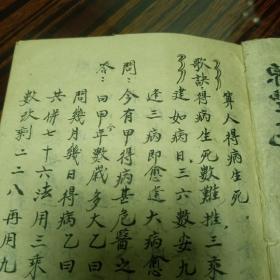 算人得病生死
歌訣·得病生死數難推，三乘
建如病日，三六數安九
逢三病即愈，逢大病愈
問：今有甲得病甚危醫之
答：曰甲年數歲多大乙曰
問幾月幾日得病乙曰
共併七十六法用三乘
數放剩二二八再用九